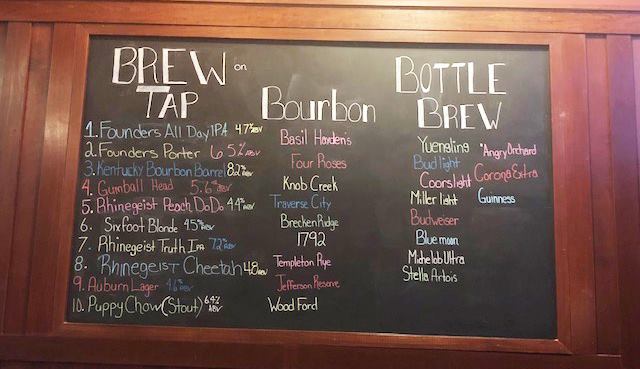 BREW on
TAP
1. Founders All Day IPA 4.7% ABV
2. Founders Porter 6.5% ABV
3. Kentucky Bourbon Barrel 8.2% ABV
4. Gumball Head 5.6% ABV
5. Rhinegeist Peach DoDo 4.4% ABV
6. Sixfoot Blonde 45% ABV
7. Rhinegeist Truth IPA 7.2% ABV
8. Rhinegeist Cheetah 4.8 ABV
9. Auburn Lager 4.6% ABV
10. Puppy Chow (Stout) 6.4% ABV
Bourbon
Basil Hayden's
Four Roses
Knob Creek
Traverse City
Brecken Ridge
1792
Templeton Rye
Jefferson Reserve
Wood Ford
BOTTLE
BREW
Yuengling
Bud light
Coors light
Miller light
Budweiser
Blue moon
Michelob Ultra
Stella Artois
Angry Orchard
Corona Extra
Guinness